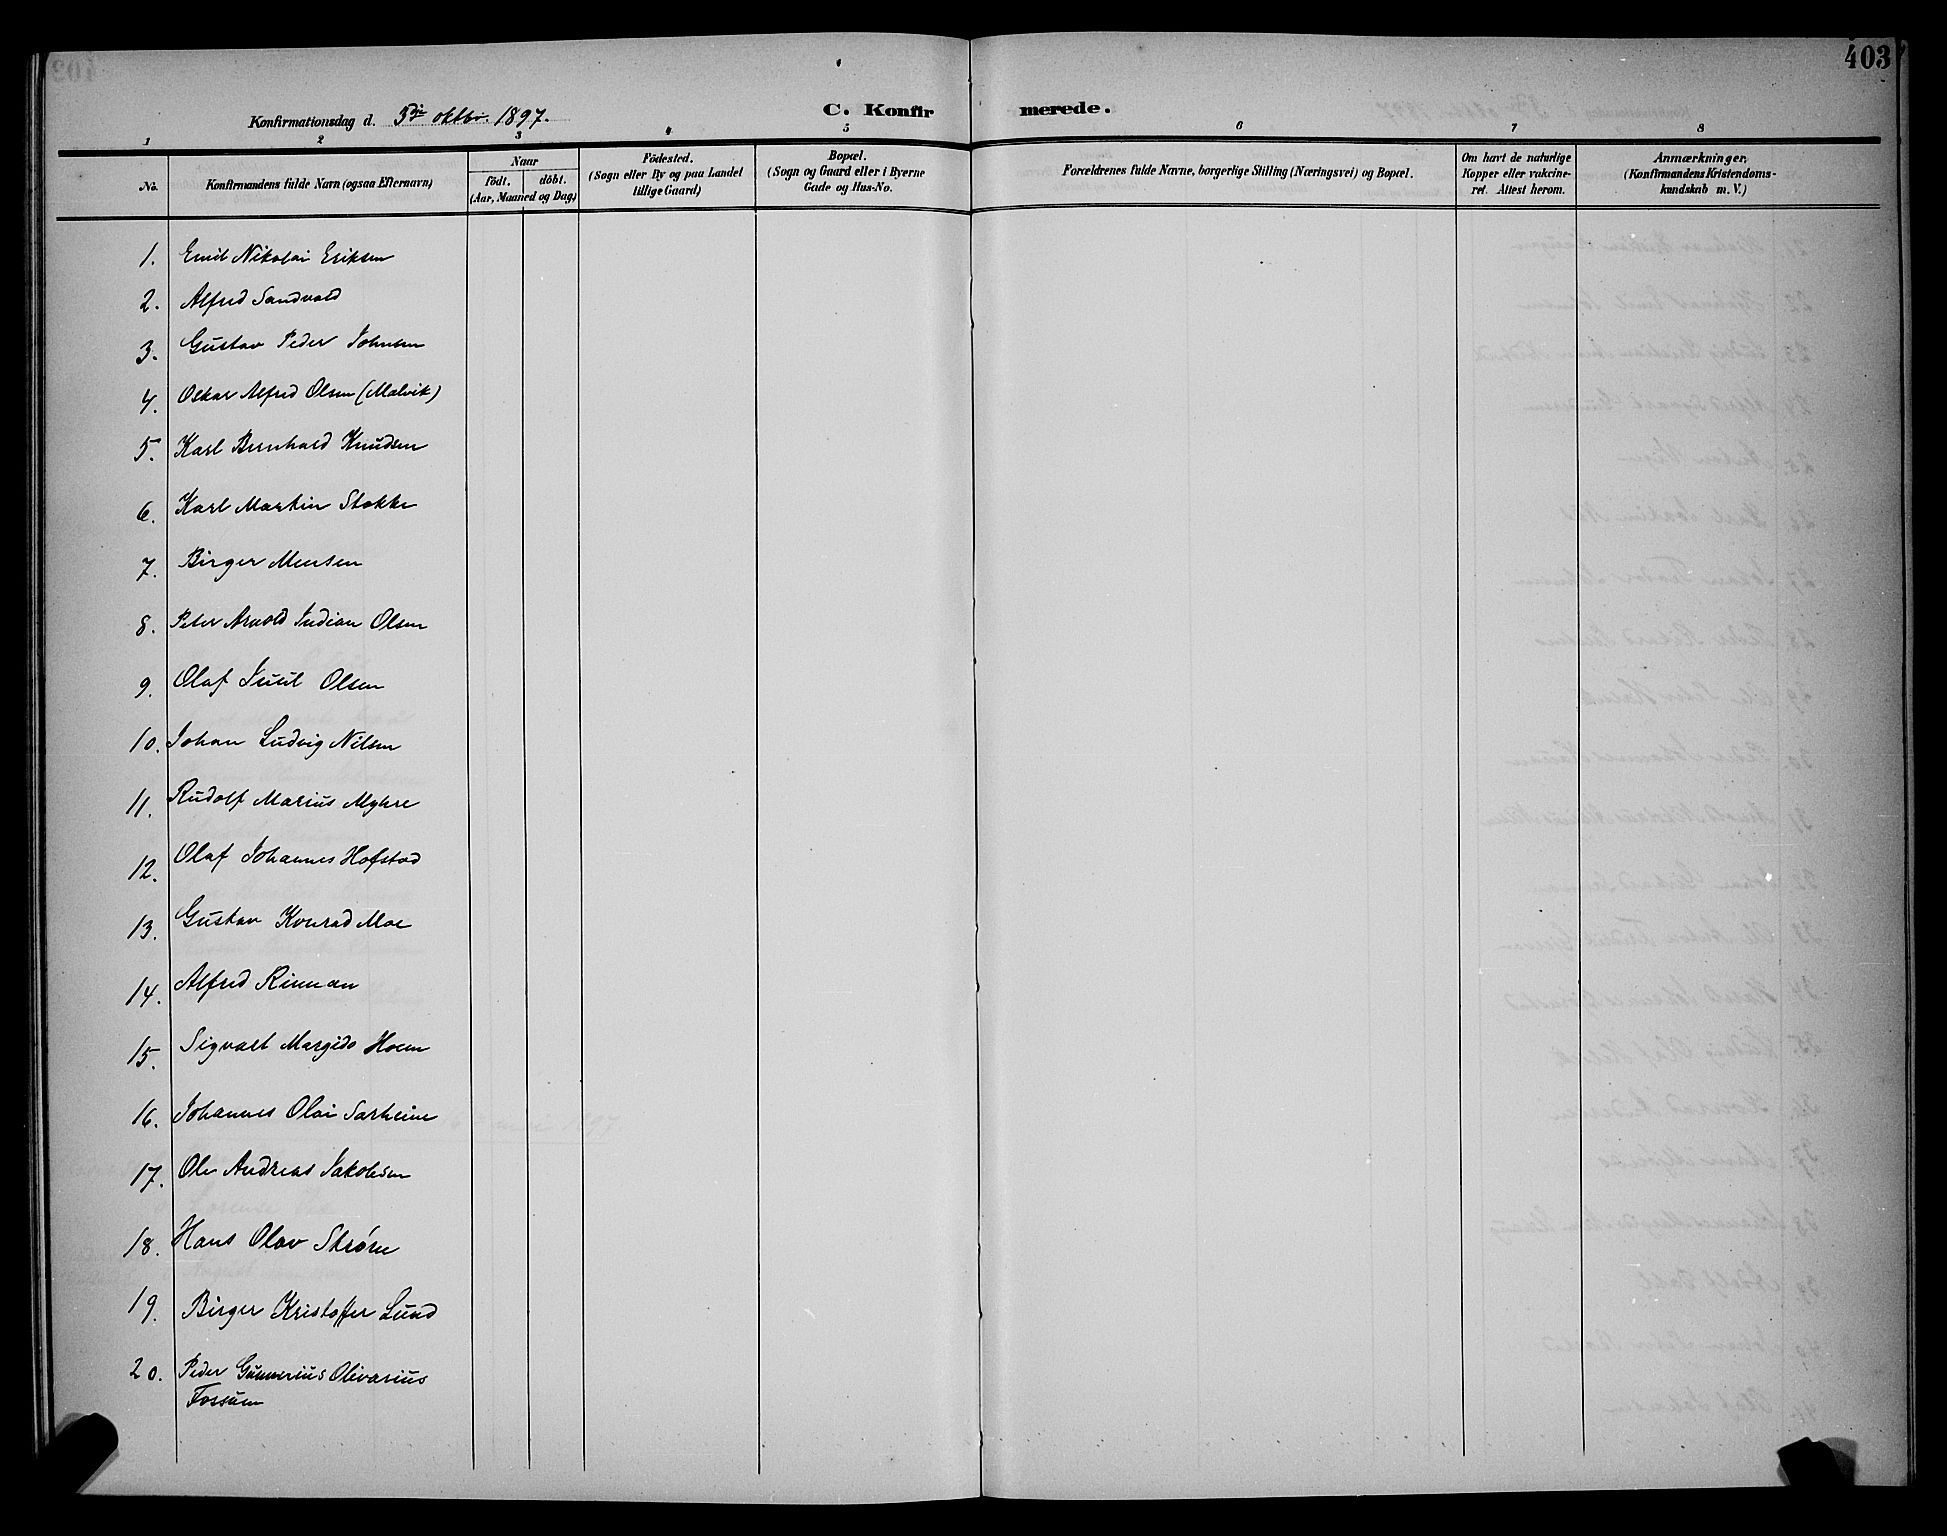 403
Konfirmationsdag d. 3die oktbr. 1897.
C. Konfirmerede.
1 2 3 4 5 6 7 8
No.
Konfirmandens fulde Navn (ogsaa Efternavn)
Naar
födt. döbt.
(Aar, Maaned og Dag)
Födested.
(Sogn eller By og paa Landet
tillige Gaard)
Bopæl.
(Sogn og Gaard eller i Byerne
Gade og Hus-No.
Forældrenes fulde Navne, borgerlige Stilling (Næringsvei) og Bopæl.
Om havt de naturlige
Kopper eller vakcine-
ret. Attest herom.
Anmærkninger.
(Konfirmandens Kristendoms-
kundskab m. V.)
1. Emil Nikolai Eriksen
2. Alfred Sandvold
3. Gustav Peder Johnsen
4. Oskar Alfred Olsen (Malvik)
5. Karl Bernhard Knudsen
6. Karl Martin Stokke
7. Birger Monsen
8. Peter Arnold Indian Olsen
9. Olaf Juul Olsen
10. Johan Ludvig Nilsen
11. Rudolf Marius Myhre
12. Olaf Johannes Hofstad
13. Gustav Konrad Moe
14. Alfred Rinnan
15. Sigvalt Margido Hoem
16. Johannes Olai Sarheim
17. Ole Andreas Jakobsen
18. Hans Olav Strøm
19. Birger Kristoffer Lund
20. Peder Gunnerius Olivarius
Fossum